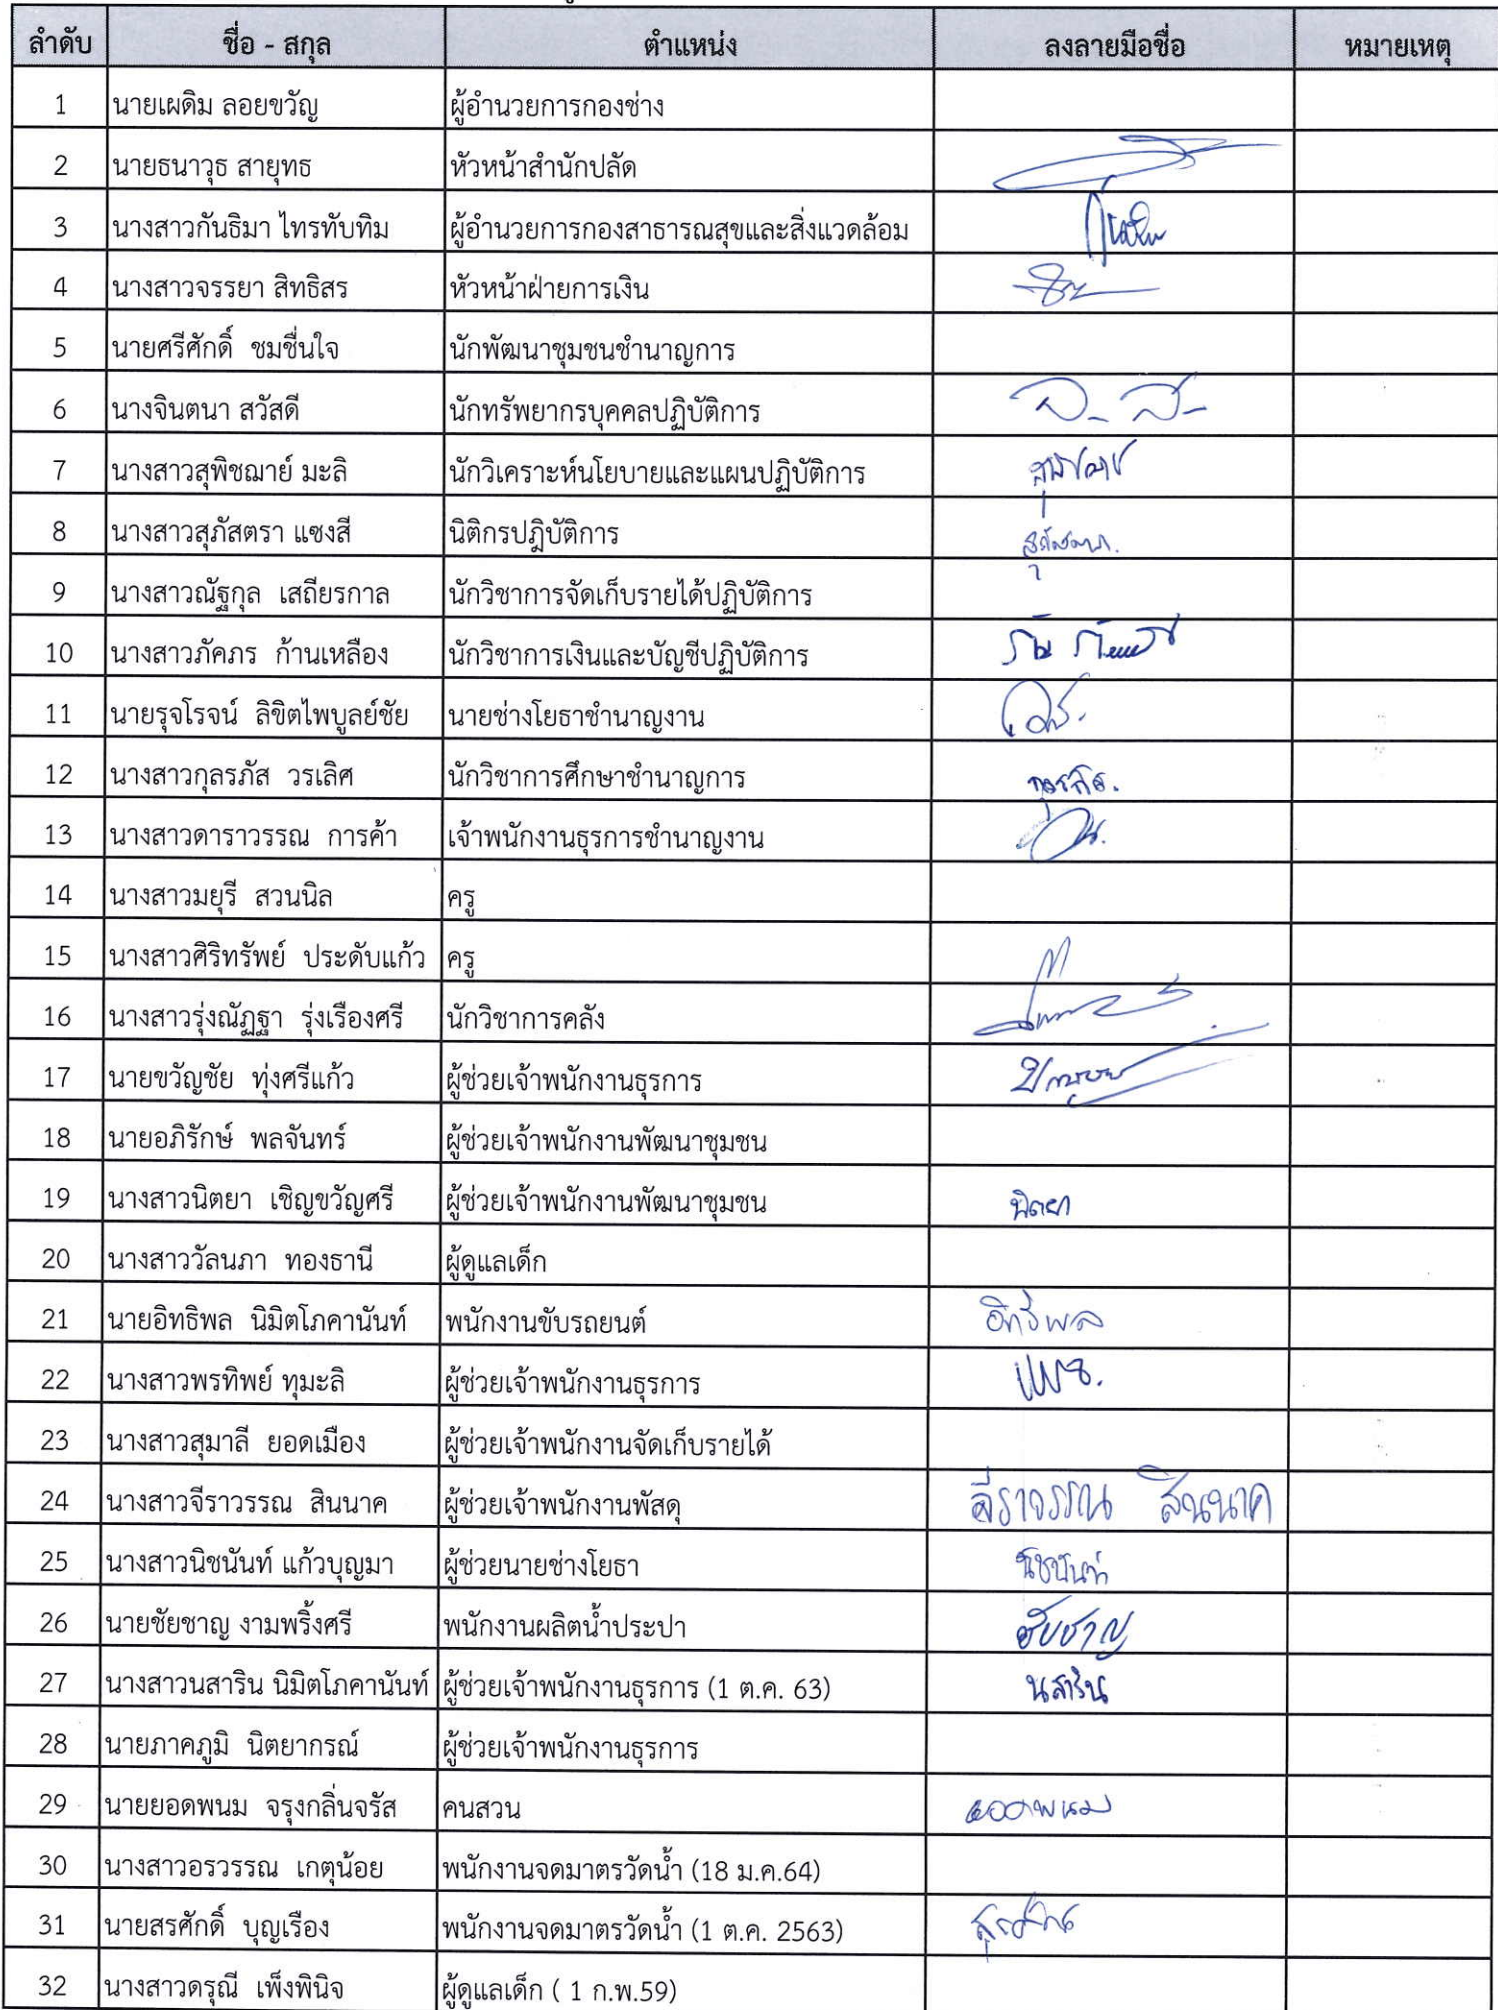 ลำดับ ชื่อ - สกุล ตำแหน่ง ลงลายมือชื่อ หมายเหตุ
1 นายเผดิม ลอยขวัญ ผู้อำนวยการกองช่าง
2 นายธนาวุธ สายุทธ หัวหน้าสำนักปลัด
3 นางสาวกันธิมา ไทรทับทิม ผู้อำนวยการกองสาธารณสุขและสิ่งแวดล้อม
4 นางสาวจรรยา สิทธิสร หัวหน้าฝ่ายการเงิน
5 นายศรีศักดิ์ ชมชื่นใจ นักพัฒนาชุมชนชำนาญการ
6 นางจินตนา สวัสดี นักทรัพยากรบุคคลปฏิบัติการ
7 นางสาวสุพิชฌาย์ มะลิ นักวิเคราะห์นโยบายและแผนปฏิบัติการ
8 นางสาวสุภัสตรา แซงสี นิติกรปฎิบัติการ
9 นางสาวณัฐกุล เสถียรกาล นักวิชาการจัดเก็บรายได้ปฏิบัติการ
10 นางสาวภัคภร ก้านเหลือง นักวิชาการเงินและบัญชีปฏิบัติการ
11 นายรุจโรจน์ ลิขิตไพบูลย์ชัย นายช่างโยธาชำนาญงาน
12 นางสาวกุลรภัส วรเลิศ นักวิชาการศึกษาชำนาญการ
13 นางสาวดาราวรรณ การค้า เจ้าพนักงานธุรการชำนาญงาน
14 นางสาวมยุรี สวนนิล ครู
15 นางสาวศิริทรัพย์ ประดับแก้ว ครู
16 นางสาวรุ่งณัฏฐา รุ่งเรืองศรี นักวิชาการคลัง
17 นายขวัญชัย ทุ่งศรีแก้ว ผู้ช่วยเจ้าพนักงานธุรการ
18 นายอภิรักษ์ พลจันทร์ ผู้ช่วยเจ้าพนักงานพัฒนาชุมชน
19 นางสาวนิตยา เชิญขวัญศรี ผู้ช่วยเจ้าพนักงานพัฒนาชุมชน นิตยา
20 นางสาววัลนภา ทองธานี ผู้ดูแลเด็ก
21 นายอิทธิพล นิมิตโภคานันท์ พนักงานขับรถยนต์ อิทธิพล
22 นางสาวพรทิพย์ ทุมะลิ ผู้ช่วยเจ้าพนักงานธุรการ
23 นางสาวสุมาลี ยอดเมือง ผู้ช่วยเจ้าพนักงานจัดเก็บรายได้
24 นางสาวจีราวรรณ สินนาค ผู้ช่วยเจ้าพนักงานพัสดุ จีราวรรณ สินนาค
25 นางสาวนิชนันท์ แก้วบุญมา ผู้ช่วยนายช่างโยธา นิชนันท์
26 นายชัยชาญ งามพริ้งศรี พนักงานผลิตน้ำประปา ชัยชาญ
27 นางสาวนสาริน นิมิตโภคานันท์ ผู้ช่วยเจ้าพนักงานธุรการ (1 ต.ค. 63) นสาริน
28 นายภาคภูมิ นิตยากรณ์ ผู้ช่วยเจ้าพนักงานธุรการ
29 นายยอดพนม จรุงกลิ่นจรัส คนสวน ยอดพนม
30 นางสาวอรวรรณ เกตุน้อย พนักงานจดมาตรวัดน้ำ (18 ม.ค.64)
31 นายสรศักดิ์ บุญเรือง พนักงานจดมาตรวัดน้ำ (1 ต.ค. 2563)
32 นางสาวดรุณี เพ็งพินิจ ผู้ดูแลเด็ก ( 1 ก.พ.59)